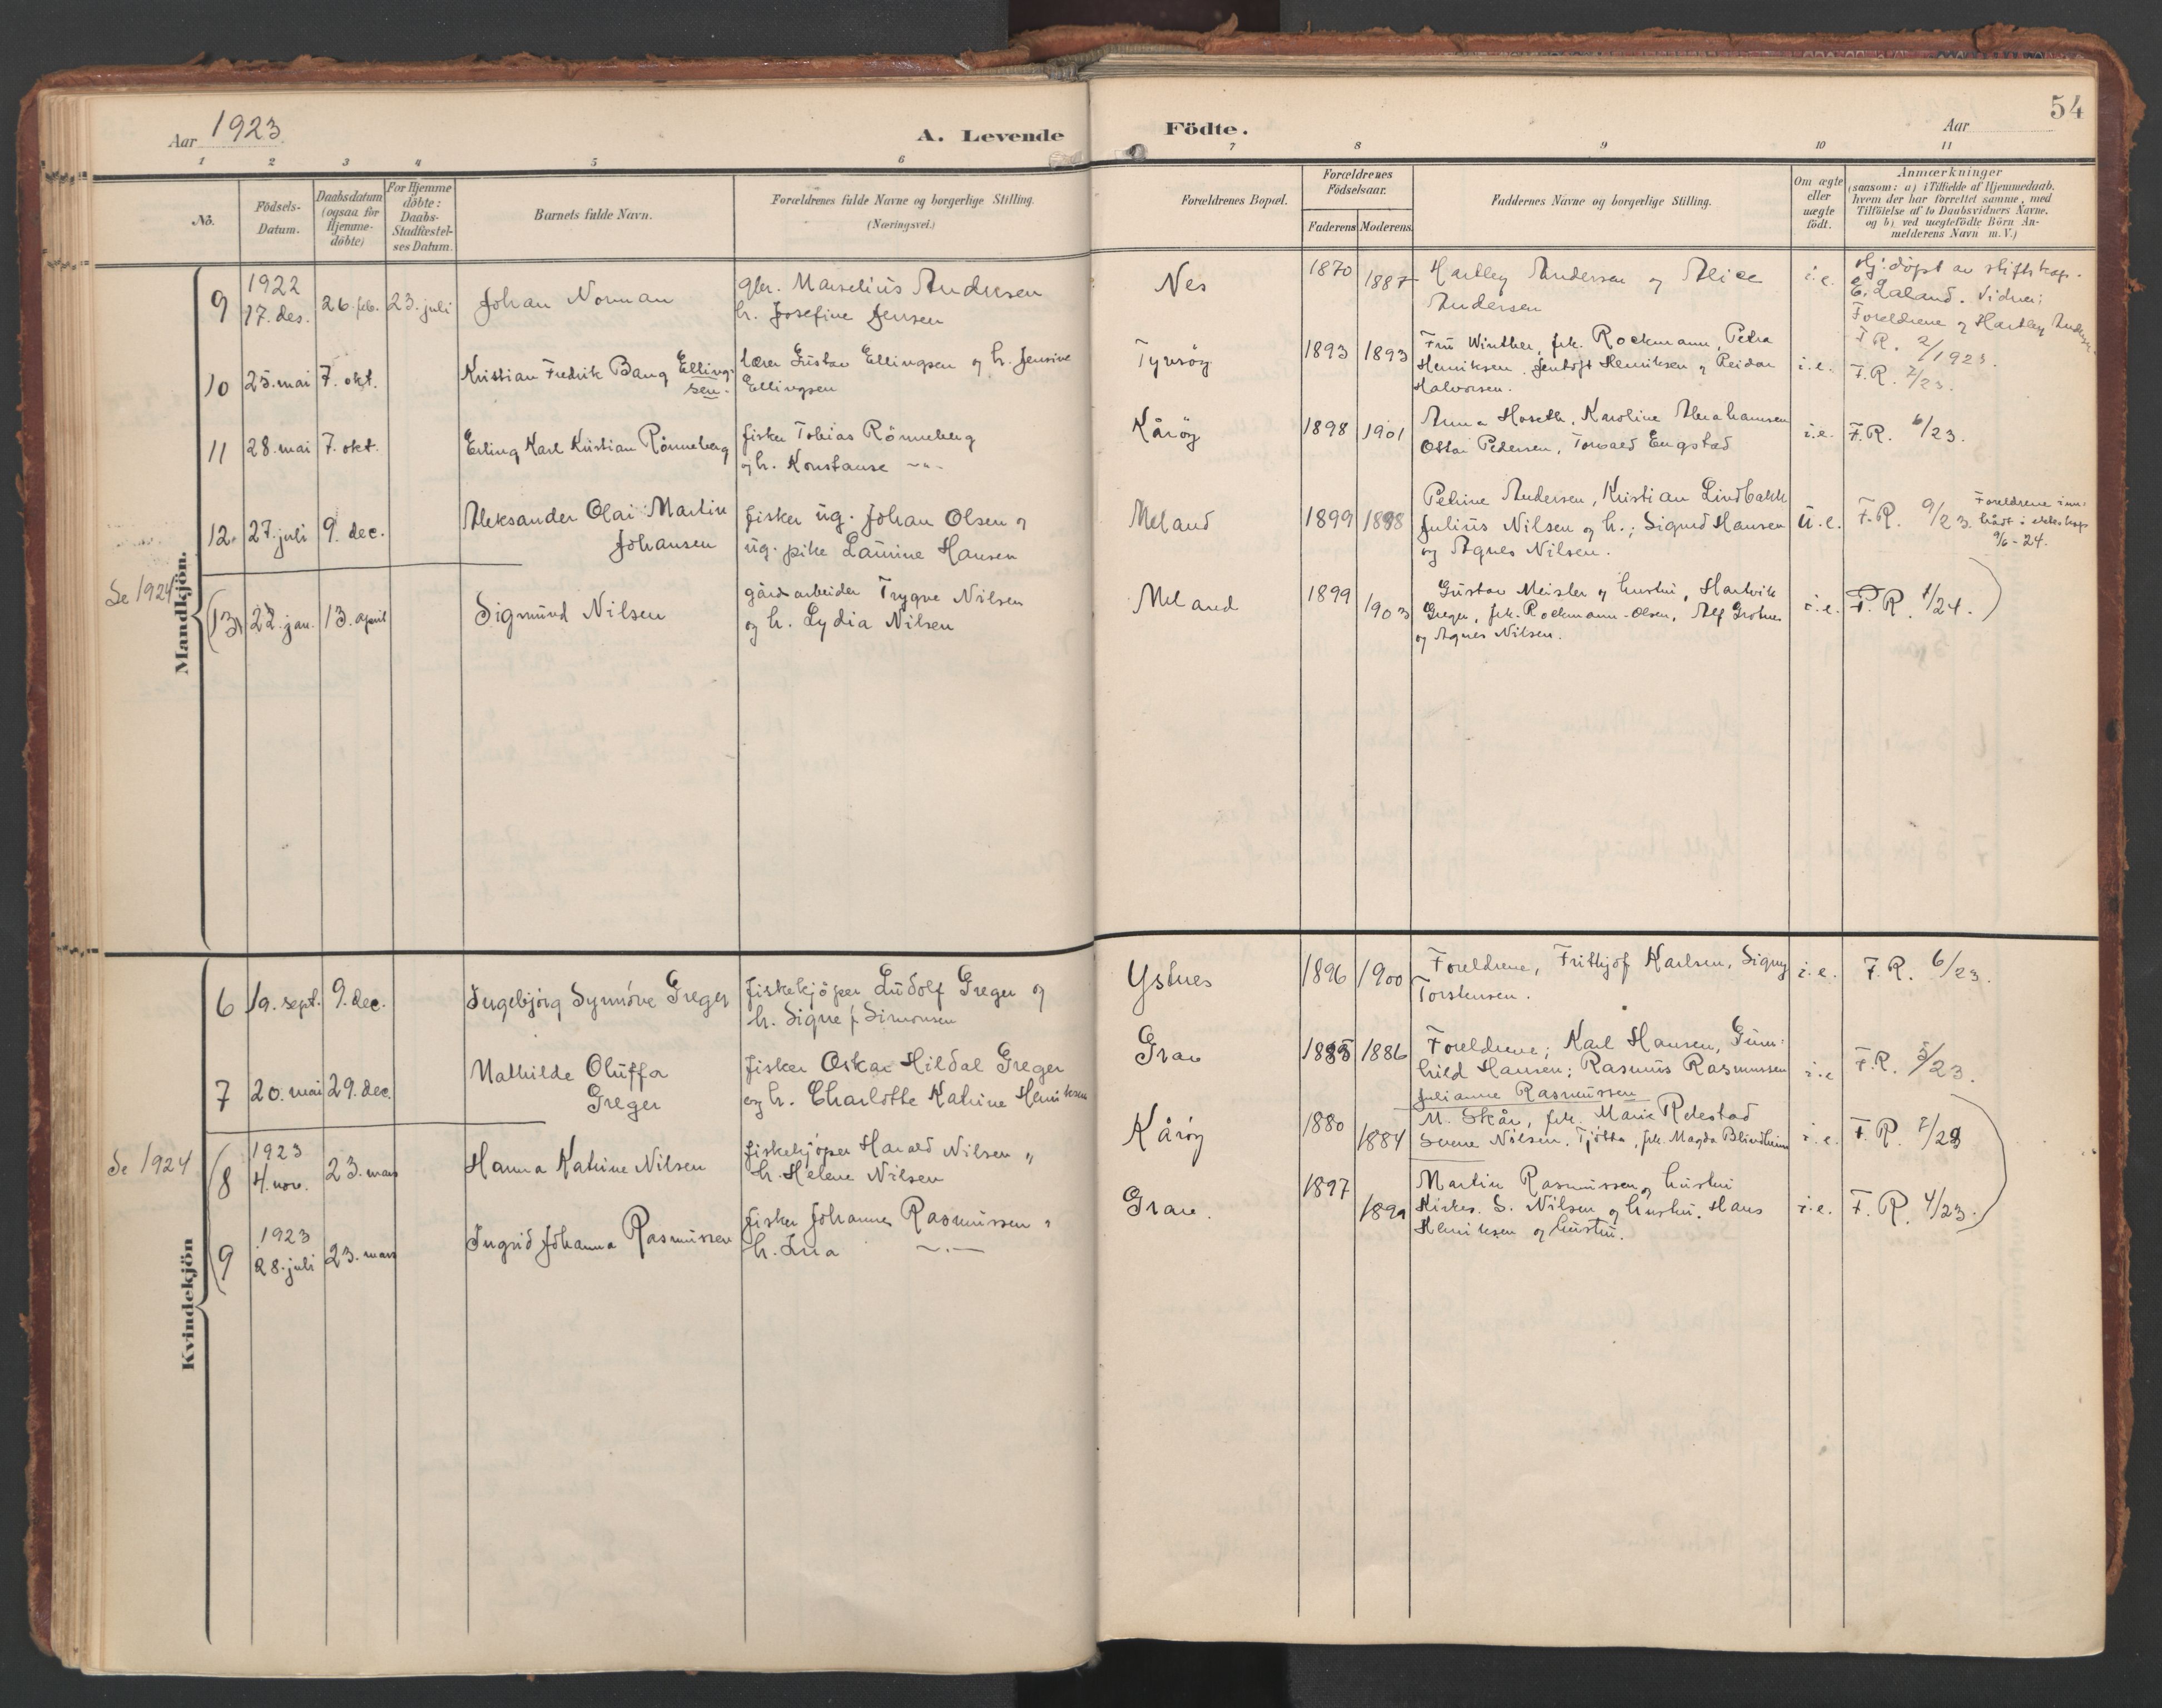 Aar 1923
A. Levende Födte.
Aar
54
1 2 3 4 5 6 7 8 9 10 11
No.
Födsels-Datum.
Daabsdatum (ogsaa for Hjemme-döbte)
For Hjemme döbte: Daabs-Stadfæstel-ses Datum.
Barnets fulde Navn.
Forældrenes fulde Navne og borgerlige Stilling.
(Næringsvei.)
Forældrenes Bopæl.
Forældrenes Födselsaar.
Faderens Moderens
Faddernes Navne og borgerlige Stilling.
Om ægte eller uægte födt.
Anmærkninger
(saasom: a) i Tilfælde af Hjemmedaab,
hvem der har forrettet samme, med
Tilföielse af to Daabsvidners Navne,
og b) ved uægtefödte Börn An-
melderens Navn m.V.)
Mandkjön.
9 1922 17. des. 26. feb. 23. juli Johan Norman
gbr. Marselius Andresen
h. Josefine Jensen
Nes 1870 1887
Hartley Andersen og Alice
Andersen
i.e.
Hj. døpt av stiftskap.
E. Laland. Vidner:
Foreldrene og Hartley Andersen
F.R. 2/1923.
10 25. mai 7. okt. Kristian Fredrik Bang Elling-
sen.
lærer Gustav Ellingsen og h. Jensine
Ellingsen
Tyvsöy 1893 1893
Frü Winther, frk. Rockmann, Petra
Henriksen, Jentoft Henriksen og Reidar
Halvorsen.
i.e. F.R. 7/23.
11 28. mai 7. okt. Erling Karl Kristian Rönneberg
fisker Tobias Rönneberg
og h. Konstanse -"-
Kåröy 1898 1901
Anna Hoseth, Karoline Abrahamsen
Ottar Pedersen, Torvald Engstad
i.e. F.R. 6/23.
12. 27. juli 9. dec. Aleksander Olai Martin
Johansen
fisker üg. Johan Olsen og
üg. pike Laurine Hansen
Meland 1899 1898
Petrine Andersen, Kristian Lindbakk
Julius Nilsen og h.; Sigurd Hansen
og Agnes Nilsen.
ü.e. F.R. 9/23. Foreldrene inn-
trådt i ekteskap
9/6-24.
Se 1924
(13) 22. jan. 13. april Sigmünd Nilsen
gårdsarbeider Trygve Nilsen
og h. Lydia Nilsen
Meland 1899 1903
Güstav Meisler og hustru, Hartvik
Greger, frk. Rockmann-Olsen, Alf Grotnes
og Agnes Nilsen.
i.e. F.R. 1/24.
Kvindekjön
6 19. sept. 9. dec. Ingebjörg Synnöve Greger
fiskekjöper Ludolf Greger og
h. Signe f. Simonsen
Ystnes 1896 1900
Foreldrene, Frithjof Karlsen, Signy
Torstensen.
i.e. F.R. 6/23.
7 20. mai 29. dec. Mathilde Oluffa
Greger
fisker Oskar Hildal Greger
og h. Charlotte Katrine Henriksen
Grav 1885 1886
Foreldrene; Karl Hansen, Gün-
hild Hansen; Rasmus Rasmussen
Julianne Rasmussen
i.e F.R. 5/23.
Se 1924
(8 1923 4. nov. 23. mars Hanna Katrine Nilsen
fiskekjöper Harald Nilsen "
h. Helene Nilsen
Kåröy 1880 1884
M. Skår, frk. Marie Rekstad
Sverre Nilsen, Tjötta, frk. Magda Blindheim
i.e. F.R. 7/23
(9 1923 28. juli 23. mars Ingrid Johanna Rasmüssen
fisker Johannes Rasmüssen "
h. Lna -"-
Grav. 1897 1899
Martin Rasmüssen og hüstrü
Kirkes. S. Nilsen og hustru. Hans
Henriksen og hüstrü.
i.e. F.R. 4/23.